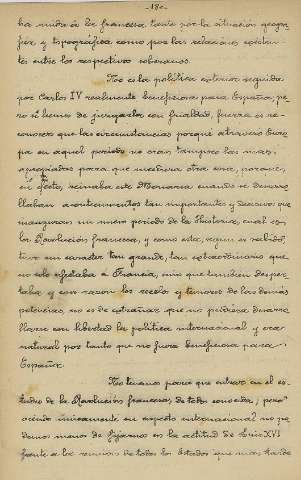 -180-
ba unida à la francesa tanto por la situación geogra-
fica y topográfica como por las relaciones existen-
tes entre los respectivos soberanos.
No es la politica exterior seguida
por Carlos IV realmente beneficiosa para España; pe-
ro si hemos de juzgarla con frialdad, fuerza es re-
conocer que las circunstancias porque atraveso Euro-
pa en aquel periodo no eran tampoco las mas
apropiadas para que sucediera otra cosa, porque,
en efecto, reinaba este Monarca cuando se desarro-
llaban acontecimientos tan importantes y decisivos que
inauguran un nuevo periodo de la Historia, cual es
la Revolución francesa, y como esta, segun es sabido,
tuvo un caracter tan grande, tan extraordinario que
no solo afectaba à Francia, sino que tambien desper-
taba y con razon los recelos y temores de las demás
potencias, no es de extrañar que no pudiese desarro-
llarse con libertad la politica internacional y era
natural por tanto que no fuera beneficiosa para
España.
No tenemos para que entrar en el es-
tudio de la Revolución francesa de todos conocida; pero
únicamente en aspecto internacional no po-
demos menos de fijarnos en la actitud de Luis XVI
frente a las reuniones de todos los Estados que mas tarde